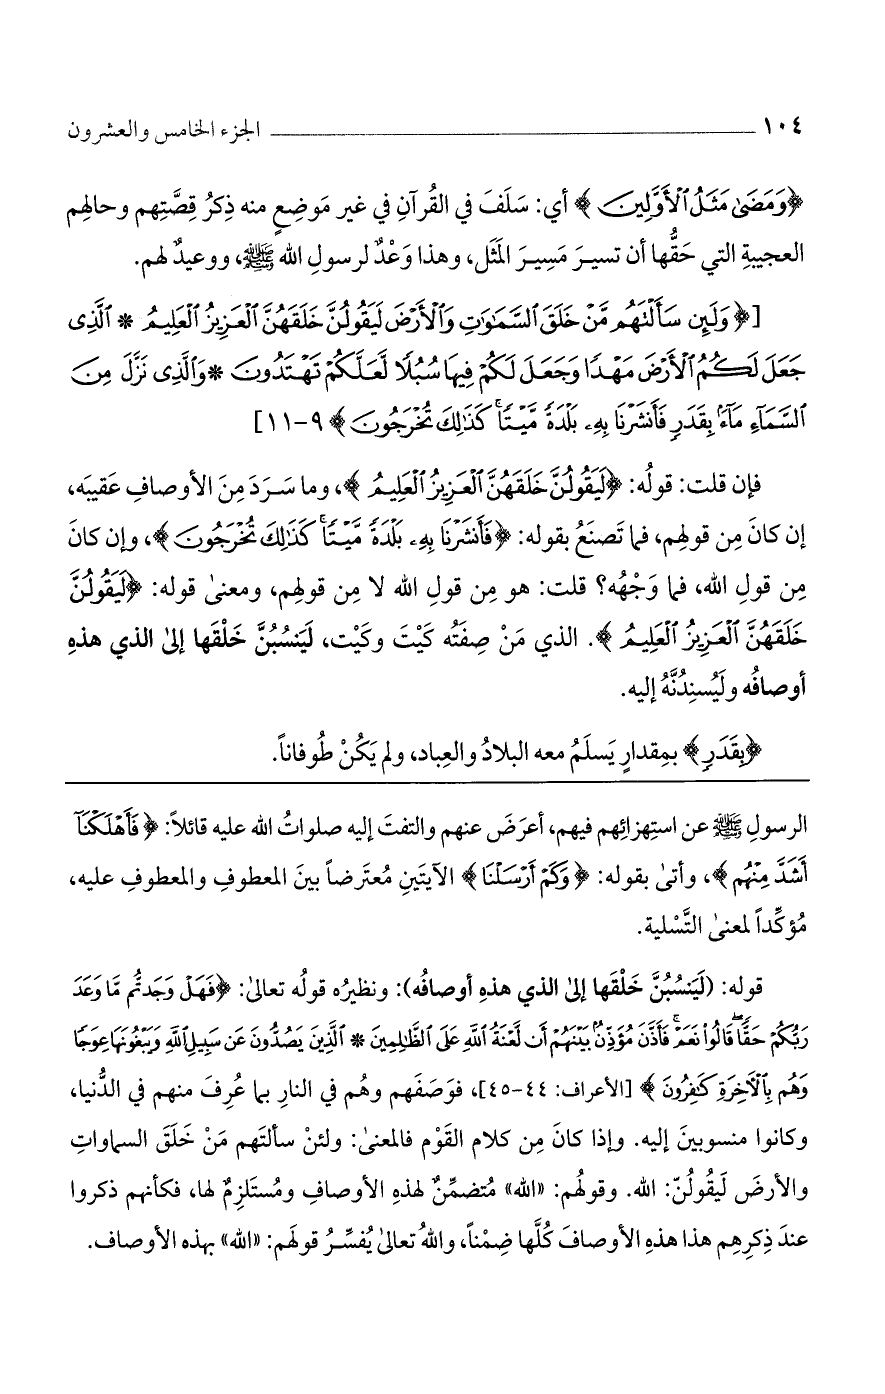 ١٠٤ ــــــــــــــــــــ الجزء الخامس والعشرون
﴿وَمَضَىٰ مَثَلُ ٱلْأَوَّلِينَ﴾ أي: سَلَفَ في القُرآنِ في غيرِ مَوضِعٍ منه ذِكرُ قِصَّتِهم وحالِهم
العجيبةِ التي حَقُّها أن تسيرَ مَسِيرَ المَثَل، وهذا وَعْدٌ لرسولِ الله ﷺ، ووعيدٌ لهم.
[﴿وَلَئِن سَأَلْتَهُم مَّنْ خَلَقَ ٱلسَّمَٰوَٰتِ وَٱلْأَرْضَ لَيَقُولُنَّ خَلَقَهُنَّ ٱلْعَزِيزُ ٱلْعَلِيمُ * ٱلَّذِى
جَعَلَ لَكُمُ ٱلْأَرْضَ مَهْدًا وَجَعَلَ لَكُمْ فِيهَا سُبُلًا لَّعَلَّكُمْ تَهْتَدُونَ * وَٱلَّذِى نَزَّلَ مِنَ
ٱلسَّمَآءِ مَآءًۢ بِقَدَرٍ فَأَنشَرْنَا بِهِۦ بَلْدَةً مَّيْتًا ۚ كَذَٰلِكَ تُخْرَجُونَ﴾ ٩-١١]
فإن قلت: قولُه: ﴿لَيَقُولُنَّ خَلَقَهُنَّ ٱلْعَزِيزُ ٱلْعَلِيمُ﴾، وما سَرَدَ مِنَ الأوصافِ عَقيبَه،
إن كانَ مِن قولِهم، فما تَصنَعُ بقوله: ﴿فَأَنشَرْنَا بِهِۦ بَلْدَةً مَّيْتًا ۚ كَذَٰلِكَ تُخْرَجُونَ﴾، وإن كانَ
مِن قولِ الله، فما وَجْهُه؟ قلت: هو مِن قولِ الله لا مِن قولِهم، ومعنىٰ قوله: ﴿لَيَقُولُنَّ
خَلَقَهُنَّ ٱلْعَزِيزُ ٱلْعَلِيمُ﴾. الذي مَنْ صِفتُه كَيْتَ وكَيْت، لَيَنسُبُنَّ خَلْقَها إلىٰ الذي هذهِ
أوصافُه ولَيُسنِدُنَّهُ إليه.
﴿بِقَدَرٍ﴾ بمِقدارٍ يَسلَمُ معه البلادُ والعِباد، ولم يَكُنْ طُوفاناً.
الرسولِ ﷺ عن استِهزائِهم فيهم، أعرَضَ عنهم والتفتَ إليه صلواتُ الله عليه قائلاً: ﴿فَأَهْلَكْنَآ
أَشَدَّ مِنْهُم﴾، وأتىٰ بقوله: ﴿وَكَمْ أَرْسَلْنَا﴾ الآيتَينِ مُعتَرضاً بينَ المعطوفِ والمعطوفِ عليه،
مُؤكِّداً لمعنىٰ التَّسْلية.
قوله: (لَيَنسُبُنَّ خَلْقَها إلىٰ الذي هذهِ أوصافُه): ونظيرُه قولُه تعالىٰ: ﴿فَهَلْ وَجَدتُّم مَّا وَعَدَ
رَبُّكُمْ حَقًّا ۖ قَالُوا۟ نَعَمْ ۚ فَأَذَّنَ مُؤَذِّنٌۢ بَيْنَهُمْ أَن لَّعْنَةُ ٱللَّهِ عَلَى ٱلظَّٰلِمِينَ * ٱلَّذِينَ يَصُدُّونَ عَن سَبِيلِ ٱللَّهِ وَيَبْغُونَهَا عِوَجًا
وَهُم بِٱلْأَخِرَةِ كَٰفِرُونَ﴾ [الأعراف: ٤٤-٤٥]، فوَصَفَهم وهُم في النارِ بما عُرِفَ منهم في الدُّنيا،
وكانوا منسوبينَ إليه. وإذا كانَ مِن كلامِ القَوْم فالمعنىٰ: ولئنْ سألتَهم مَنْ خَلَقَ السماواتِ
والأرضَ لَيقُولُنّ: الله. وقولُهم: «الله» مُتضمِّنٌ لهذهِ الأوصافِ ومُستَلزِمٌ لها، فكأنهم ذكروا
عندَ ذِكرِهِم هذا هذهِ الأوصافَ كُلَّها ضِمْناً، واللهُ تعالىٰ يُفسِّرُ قولَهم: «الله» بهذه الأوصاف.